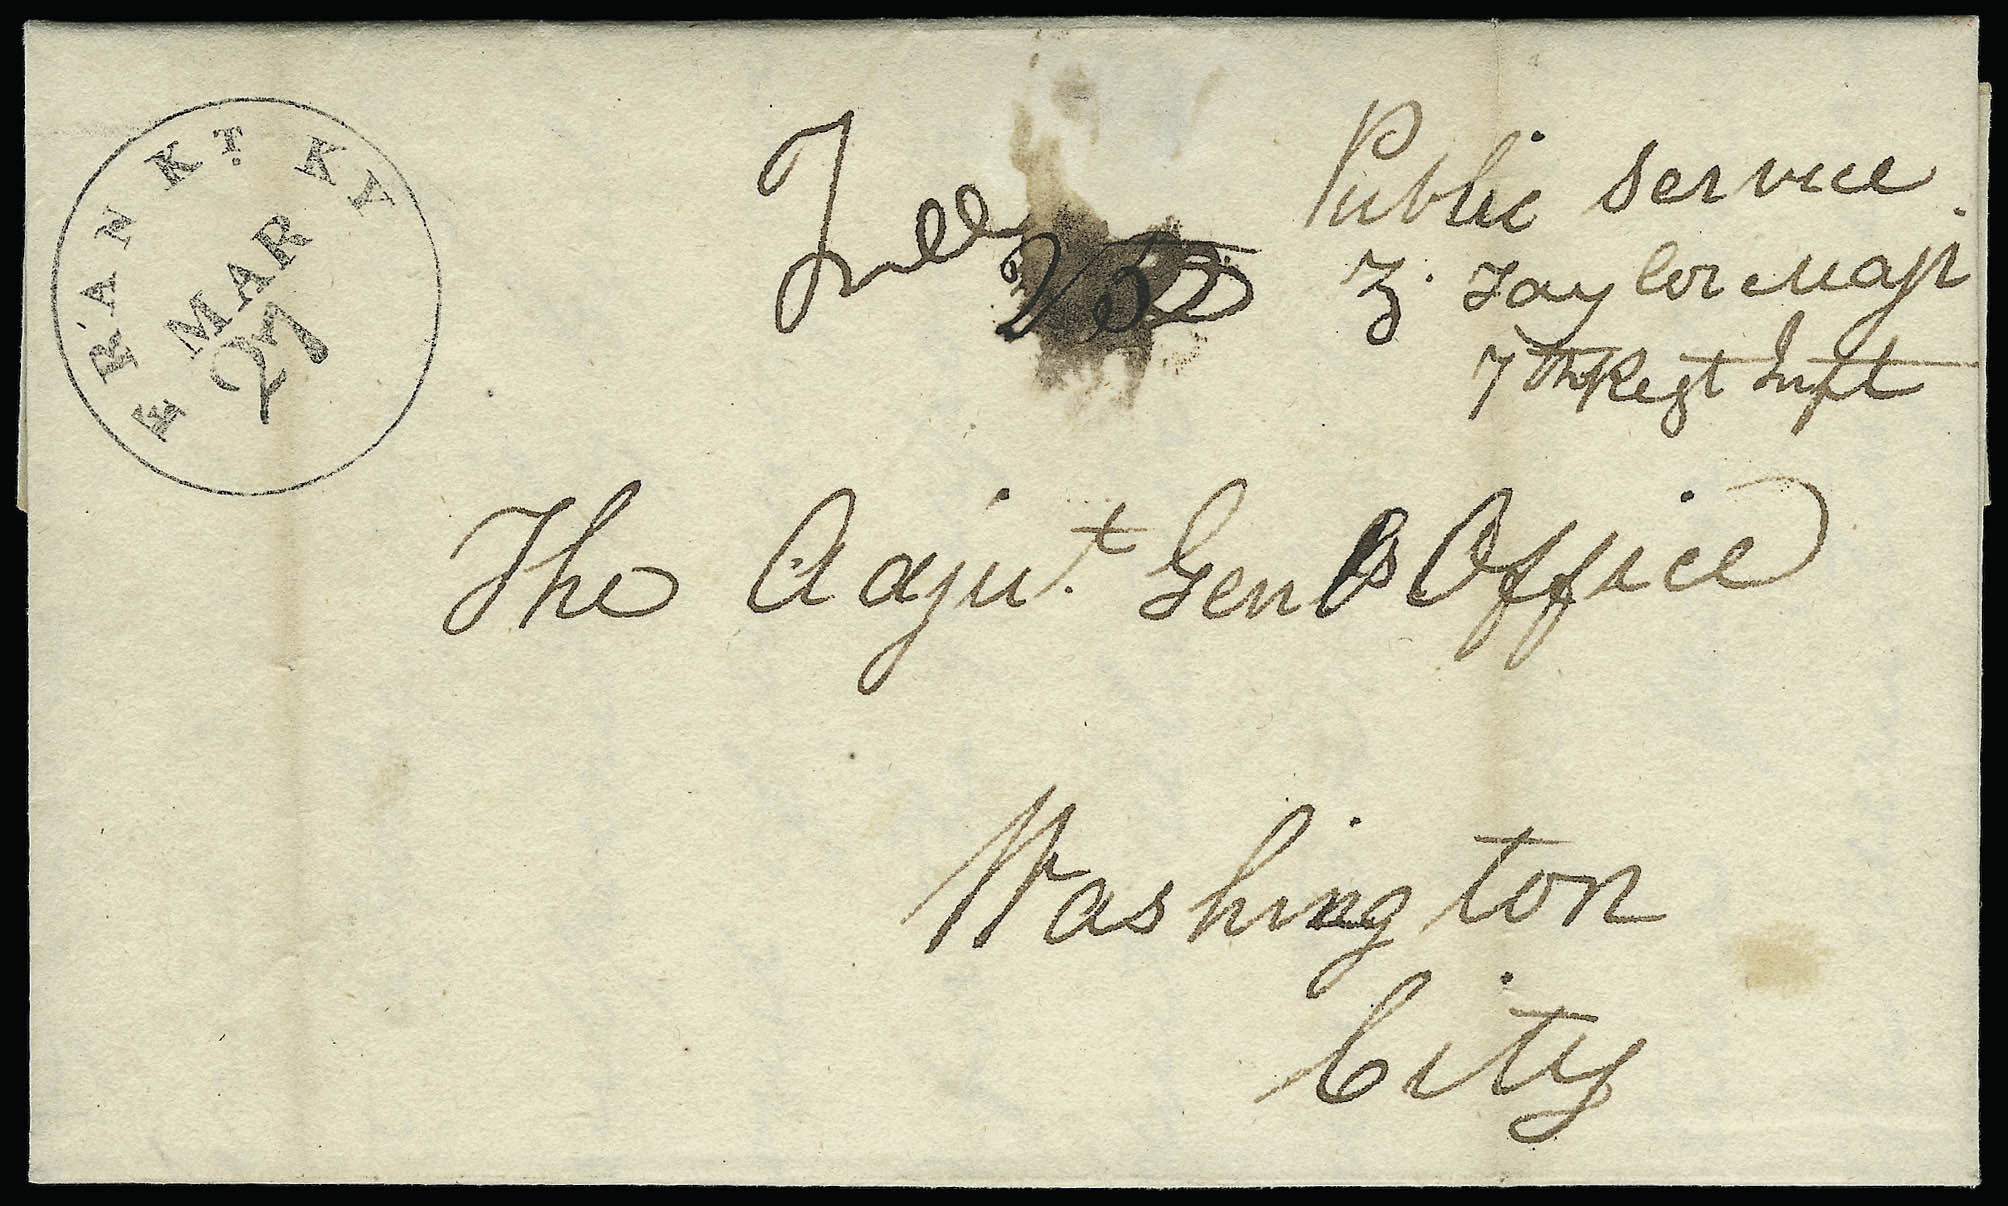 FRANKT. KY
MAR
27
Free
Public Service
Z. Taylor Majr
7th Regt Inft
The Adjut. Genls Office
Washington
City